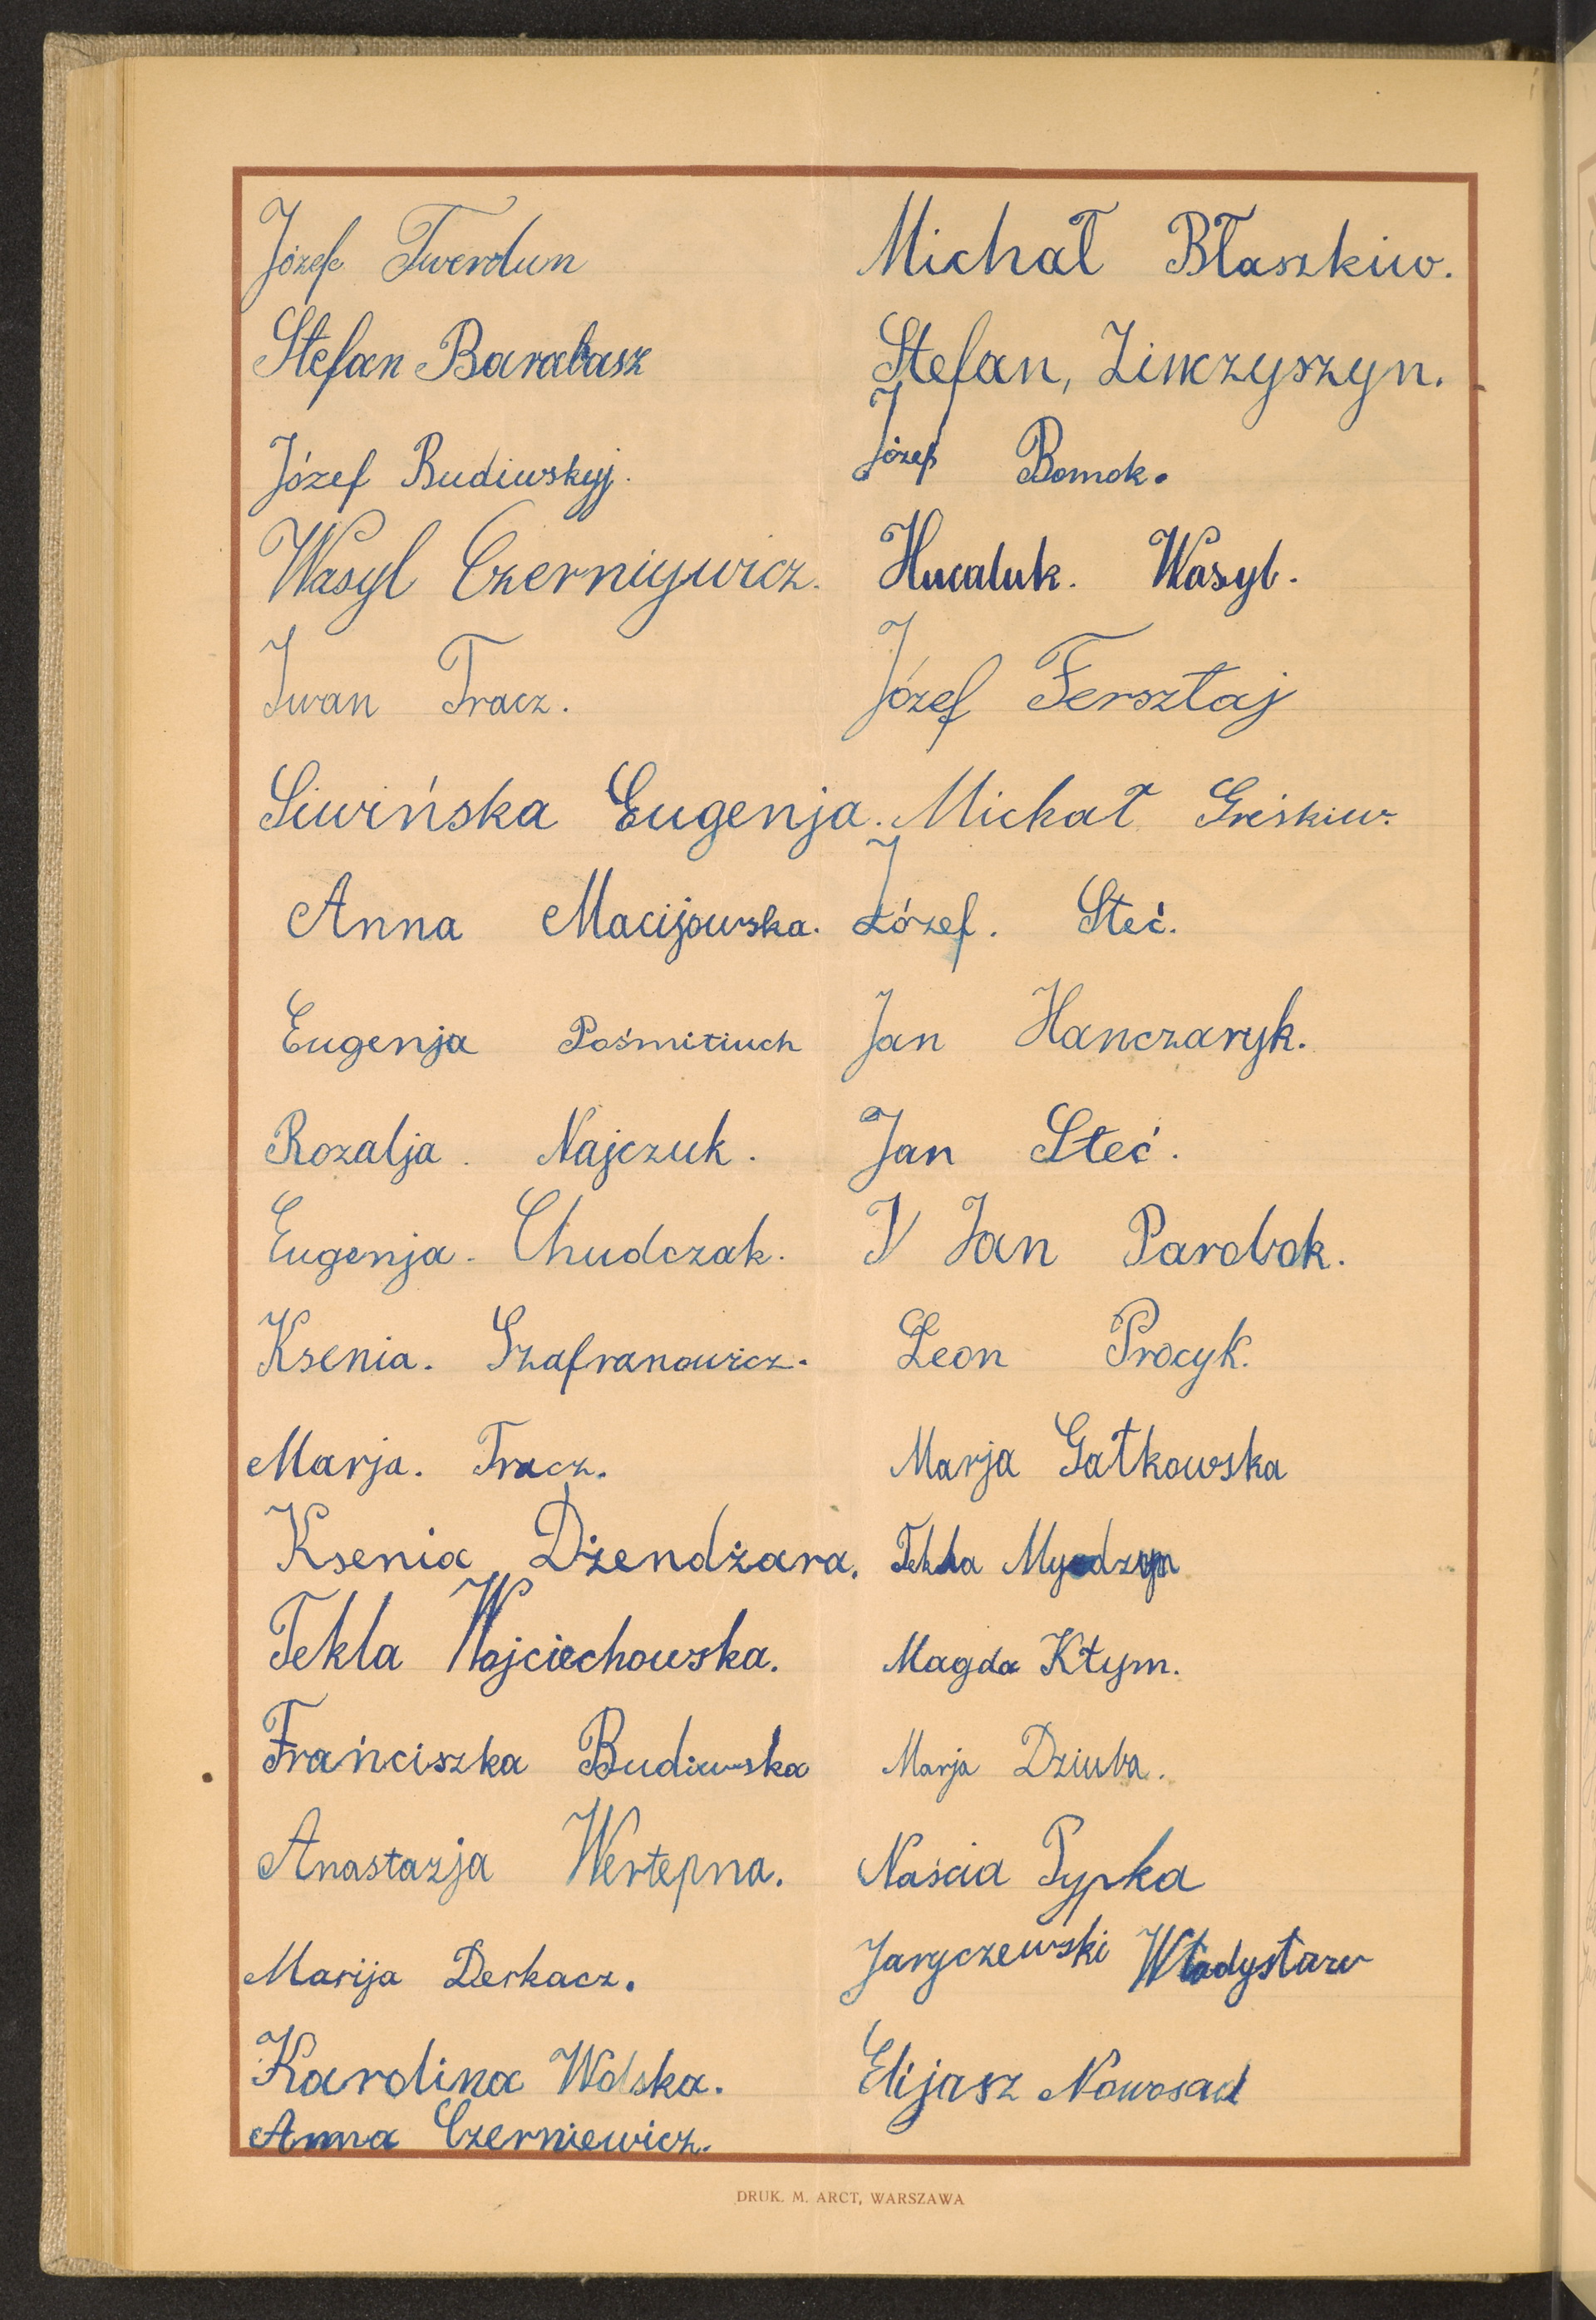 Józef Twerdun
Stefan Barabasz
Józef Budiwskyj.
Wasyl Czernijwicz.
Iwan Tracz.
Siwińska Eugenja.
Anna Macijowska.
Eugenja Pośmitiuch
Rozalja. Najczuk.
Eugenja. Chudczak.
Ksenia. Szafranowicz.
Marja. Tracz.
Ksenia Dżendżara.
Tekla Wojciechowska.
Frańciszka Budiwska
Anastazja Wertepna.
Marija Derkacz.
Karolina Wolska.
Anna Czerniewicz.
Michał Błaszkiw.
Stefan, Zinczyszyn.
Józef Bomok.
Hucaluk. Wasyl.
Józef Fersztaj
Michał Greśkiw.
Józef. Steć.
Jan Hanczaryk.
Jan Steć.
J Jan Parobok.
Leon Procyk.
Marja Gałkowska
Tekla
Magda Kłym.
Marja Dziuba.
Naścia Pypka
Jaryczewski Władysław
Elijasz Nowosad
DRUK. M. ARCT, WARSZAWA